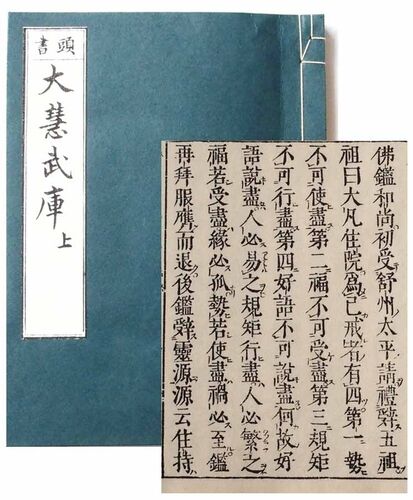 頭書
大慧武庫
上
佛鑑和尚初受舒州太平請禮辭五祖
祖曰大凡住院爲己戒者有四第一勢
不可使盡第二福不可受盡第三規矩
不可行盡第四好語不可說盡何故好
語說盡人必易之規矩行盡人必繁之
福若受盡緣必孤勢若使盡禍必至鑑
再拜服膺而退後鑑辭靈源源云住持